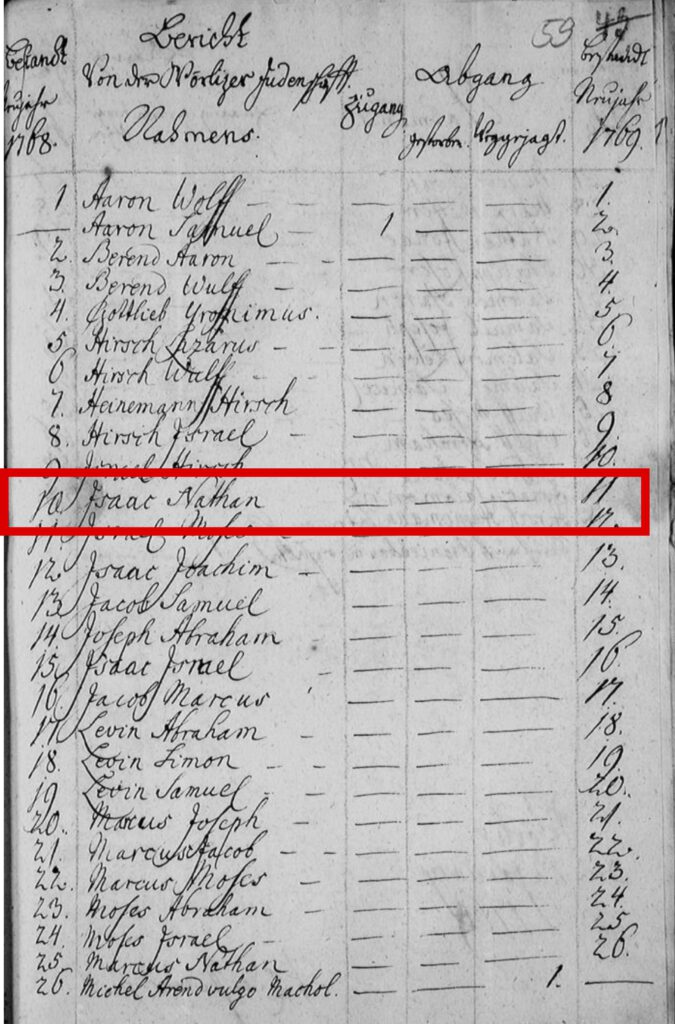 Bericht 59 44
Bestandt Von der Wörlizer Judenschafft. Abgang Bestandt
Neujahr Nahmens. Zugang Neujahr
1768. gestorben. Weggejagt. 1769.
1 Aaron Wolff — — — — — 1.
— Aaron Samuel — 1 — — 2.
2. Berend Aaron — — — 3.
3. Berend Wulff — — — — 4.
4. Gottlieb . — — — 5
5 Hirsch Lazarus — — — — — 6
6 Hirsch Wulff — — — — 7
7. Heinemann Hirsch — — — 8
8. Hirsch Israel — — — — — 9
9 Israel Hirsch — — — 10.
10 Isaac Nathan — — — 11
11. Israel Moses — — — 12.
12 Isaac Joachim — — — — 13.
13 Jacob Samuel — — — 14.
14 Joseph Abraham — — — 15.
15 Isaac Israel — — — — 16
16. Jacob Marcus — — — 17.
17 Levin Abraham — — — — 18.
18. Levin Simon — — — — — 19.
19 Levin Samuel — — — — — 20
20.. Marcus Joseph — — — — 21.
21. Marcus Jacob — — — — — 22.
22. Marcus Moses — — — — 23.
23. Moses Abraham — — — — 24.
24. Moses Israel — — — — — 25
25 Marcus Nathan — — — — 26.
26. Michel Arend vulgo Machol. — — 1. —